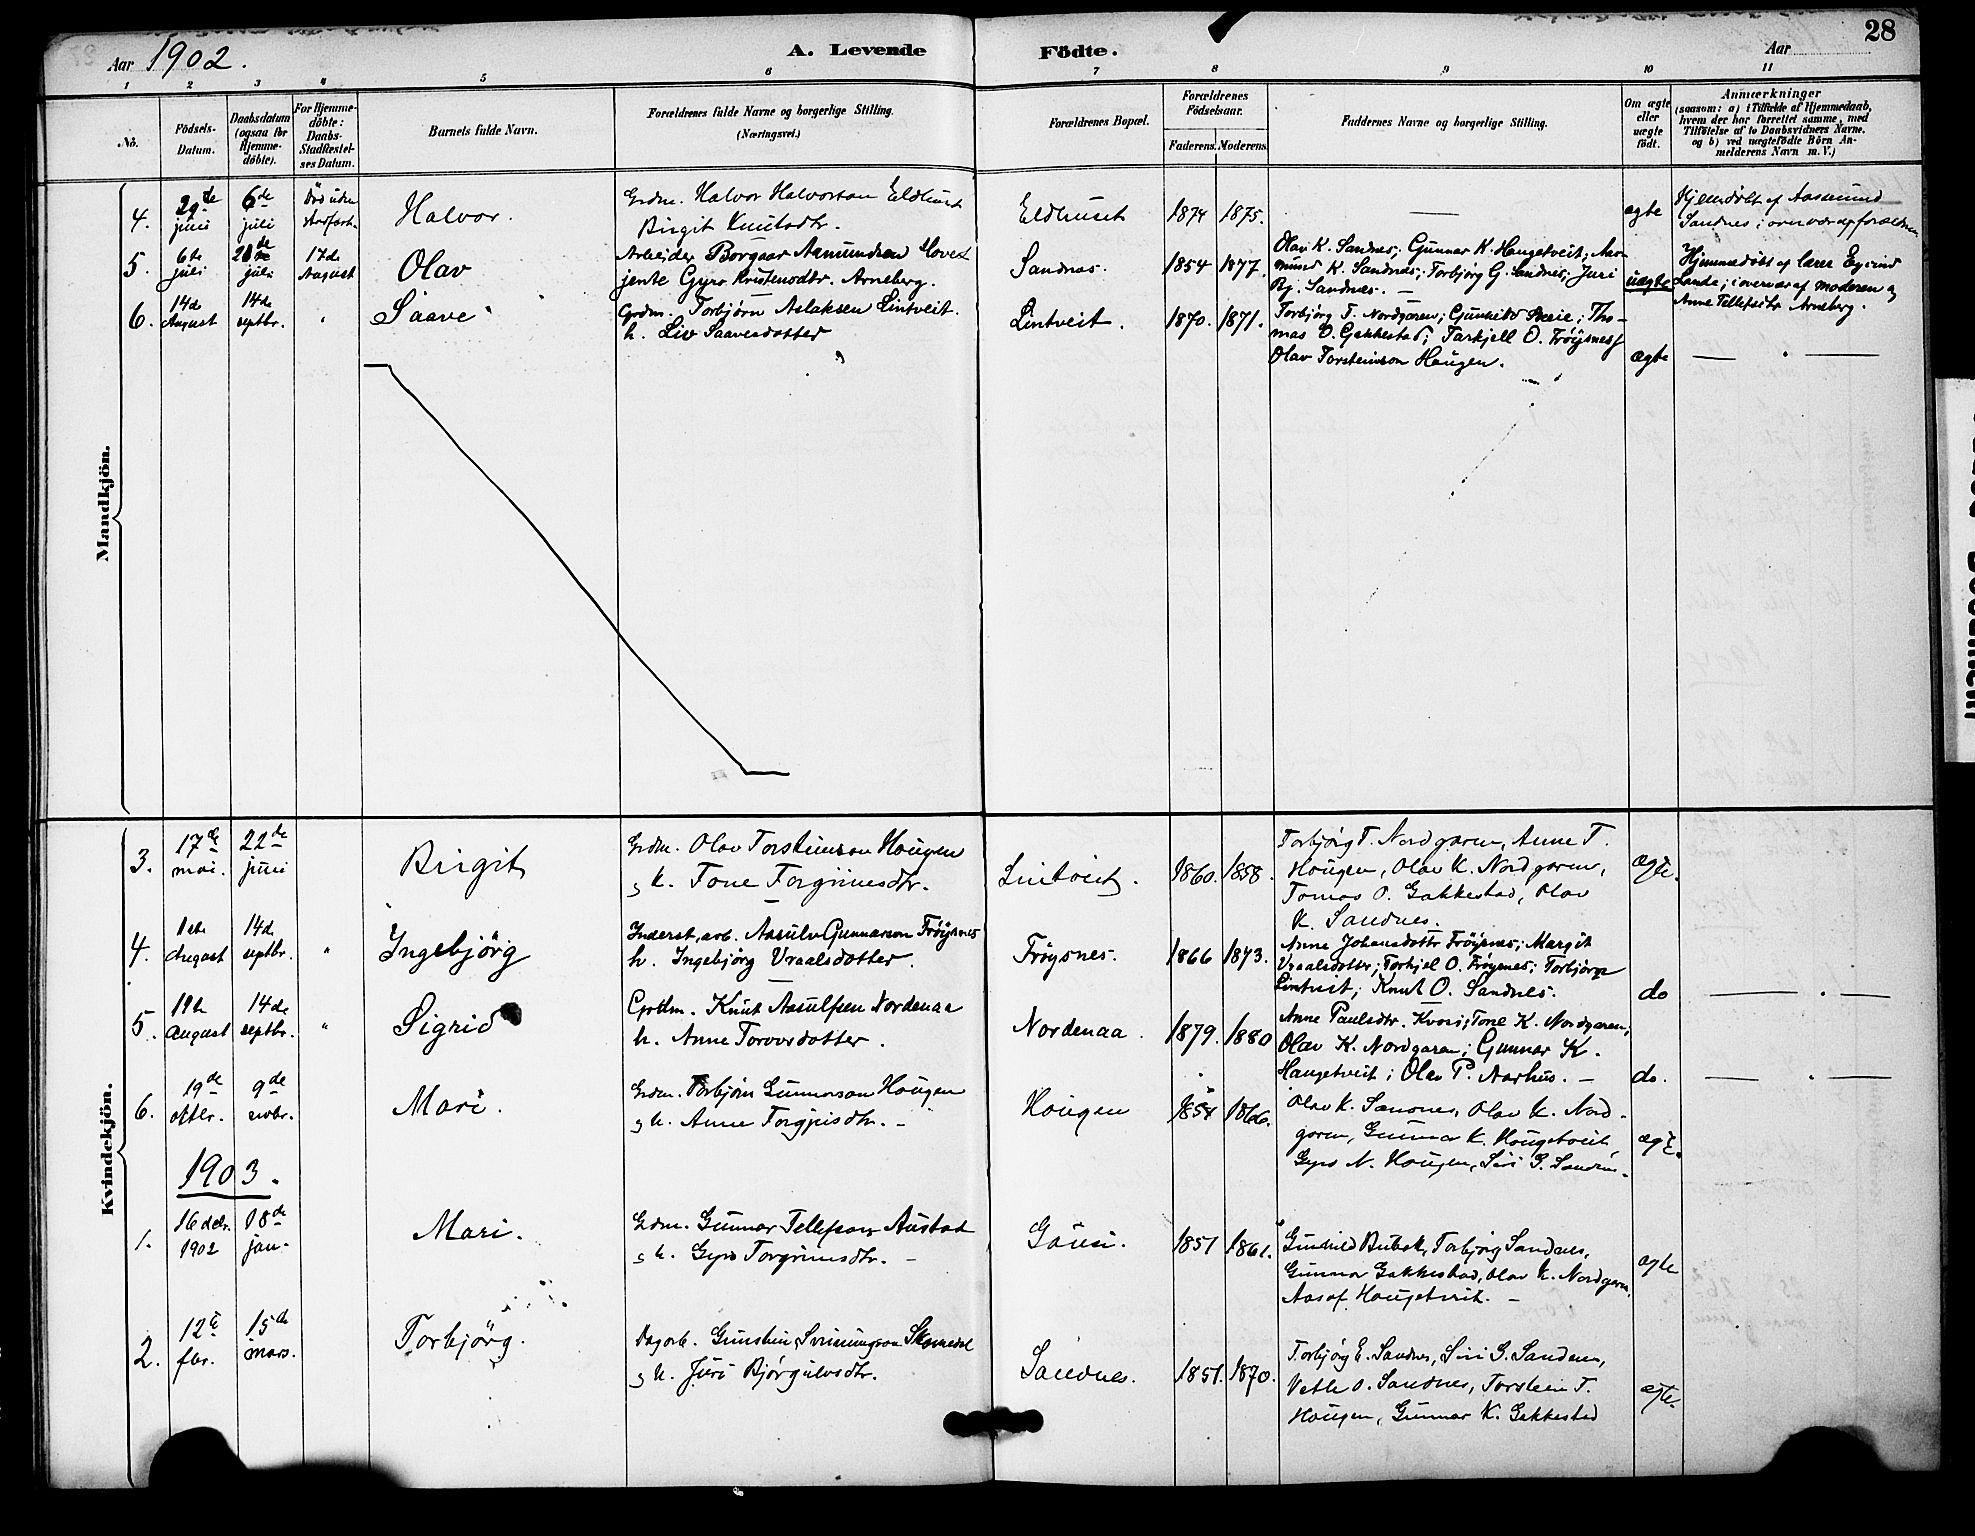 28
Aar 1902.
A. Levende Födte.
Aar
1 2 3 4 5 6 7 8 9 10 11
No.
Födsels-Datum.
Daabsdatum (ogsaa for Hjemme-döbte).
For Hjemme-döbte: Daabs-Stadfæstel-ses Datum.
Barnets fulde Navn.
Forældrenes fulde Navne og borgerlige Stilling.
(Næringsvei.)
Forældrenes Bopæl.
Forældrenes Födselsaar.
Faderens. Moderens.
Faddernes Navne og borgerlige Stilling.
Om ægte eller uægte födt.
Anmærkninger
(saasom: a) i Tilfælde af Hjemmedaab,
hvem der har forrettet samme, med
Tilföielse af to Daabsvidners Navne.
og b) ved uægtefödte Börn An-
melderens Navn m. V.)
Mandkjön.
4. 29de juni 6de juli Död uden
Halvor.
Grdm. Halvor Halvorson Eldhuset
Birgit Knutsdtr.
Eldhuset 1874 1875. — ægte
Hjemdøbt af Aasmund
Sandnes i overvær af forældrene
5. 6te juli 20de juli 17de August
Olav
Arbeider Borgaar Aamundsen
jente Gyro Kristensdtr. Arneberg.
Sandnæs. 1854 1877.
Olav K. Sandnæs; Gunnar K. Haugetveit; Aas-
mund K. Sandnæs; Torbjørg G. Sandnes; Juri
Bj. Sandnæs. —
uægte
Hjemmedøbt af lærer Eyvind
Lande; i overvær af moderen og
Anne Tellefsdtr Arneberg.
6. 14de August 14de septbr. "
Saave
Grdm. Torbjørn Aslaksen Lintveit.
h. Liv Saavesdotter
Lintveit. 1870. 1871.
Torbjørg T. Nordgaren; Gunhild ; Tho-
mas O. Gakkestad; Tarkjell O. Frøysnes;
Olav Torsteinson Haugen.
ægte — " —
Kvindekjön.
3. 17de mai. 22de juni
Birgit
Grdm. Olav Torsteinson Hougen
og h. Tone Torgrimsdtr.
Lintveit. 1860. 1858.
Torbjørg T. Nordgaren, Anne T.
Hougen, Olav K. Nordgaren,
Tomas O. Gakkestad, Olav
K. Sandnes.
ægte.
4. 1ste August 14de septbr. "
Ingebjörg
Inderst, arb. Aasulv Gunnarson Frøysnes
h. Ingebjørg Vraalsdotter.
Frøysnes. 1866 1873.
Anne Johansdottr Frøysnes; Margit
Vraalsdotter; Torkjel O. Frøysnes; Torbjørn
Lintveit; Knut O. Sandnes.
do — " —
5. 19de August 14de septbr. "
Sigrid
Grdm. Knut Aasulfsen Nordenaa
h. Anne Torovsdotter.
Nordenaa. 1879. 1880
Anne Paulsdtr. ; Tone K. Nordgaren;
Olav K. Nordgaren; Gunnar K.
Haugetveit; Olav P. Aarhus. —
do. — " —
6. 19de oktbr. 9de novbr.
Mari.
Grdm. Torbjørn Gunnarson Hougen
og h. Anne Torgjusdtr. —
Hougen 1854 1866.
Olav K. Sandnes, Olav K. Nord-
garen, Gunnar K. Hougetveit,
Gyro N. Hougen, Siri G. Sandnes.
ægte.
1903.
1. 16 decbr. 1902 18de jan.
Mari.
Grdm. Gunnar Tellefson Austad
og h. Gyro Torgrimsdtr. —
1851 1861.
Gunhild , Torbjørg Sandnes,
Gunnar Gakkestad, Olav K. Nordgaren,
Hougetveit. —
ægte
2. 12te fbr. 15de mars.
Torbjörg.
Dagarb. Gunstein Sveinungson
og h. Juri Bjørgulvsdtr.
Sandnes. 1851. 1870.
Torbjørg E. Sandnes, Siri G. Sandnes,
Vetle O. Sandnes, Torstein T.
Hougen, Gunnar K. Gakkestad
ægte.